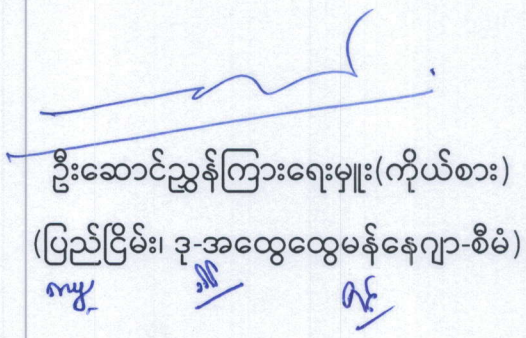 ဦးဆောင်ညွှန်ကြားရေးမှူး(ကိုယ်စား)
(ပြည်ငြိမ်း၊ ဒု-အထွေထွေမန်နေဂျာ-စီမံ)